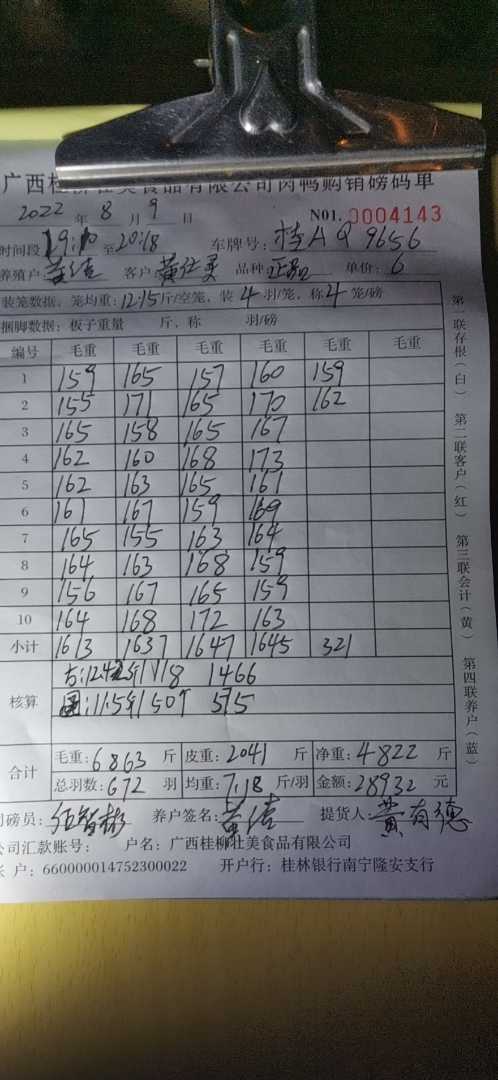 广西桂柳壮美食品有限公司肉鸭购销磅码单
2022 年 8 月 9 日 N01. 0004143
时间段 19:10 至 20:18 车牌号: 桂AQ9656
养殖户 客户 黄壮灵 品种 正品 单价: 6
装笼数据, 笼均重: 12.15 斤/空笼, 装 4 羽/笼, 称 4 笼/磅
捆脚数据: 板子重量 斤, 称 羽/磅
编号 毛重 毛重 毛重 毛重 毛重 毛重
1 159 165 157 160 159
2 155 171 165 170 162
3 165 158 165 167
4 162 160 168 173
5 162 163 165 167
6 161 167 159 169
7 165 155 163 164
8 164 163 168 159
9 156 167 165 159
10 164 168 172 163
小计 1613 1637 1647 1645 321
核算 118 1466
圆:11.5斤/50个 575
合计 毛重: 6863 斤 皮重: 2041 斤 净重: 4822 斤
总羽数: 672 羽 均重: 7.18 斤/羽 金额: 28932 元
司磅员: 养户签名: 提货人: 黄有德
公司汇款账号: 户名: 广西桂柳壮美食品有限公司
账 户: 660000014752300022 开户行: 桂林银行南宁隆安支行
第一联存根(白) 第二联客户(红) 第三联会计(黄) 第四联养户(蓝)